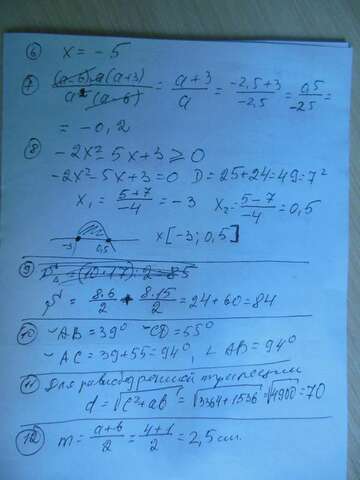 ⑥ x = -5
⑦ (a-6)a(a+3)/a²(a-6) = a+3/a = -2,5+3/-2,5 = 0,5/-2,5 =
= -0,2
⑧ -2x²-5x+3 ⩾ 0
-2x²-5x+3=0 D=25+24=49=7²
x₁ = 5+7/-4 = -3 x₂ = 5-7/-4 = 0,5
-3 0,5 x[-3; 0,5]
⑨ = (10+17):2=85
S = 8·6/2 + 8·15/2 = 24+60=84
⑩ ◡AB=39° ◡CD=55°
◡AC=39+55=94°, ∠AD=94°
⑪ Для равнобедренной трапеции
d=√c²+ab = √3364+1536 = √4900 = 70
⑫ m = a+b/2 = 4+1/2 = 2,5 см.